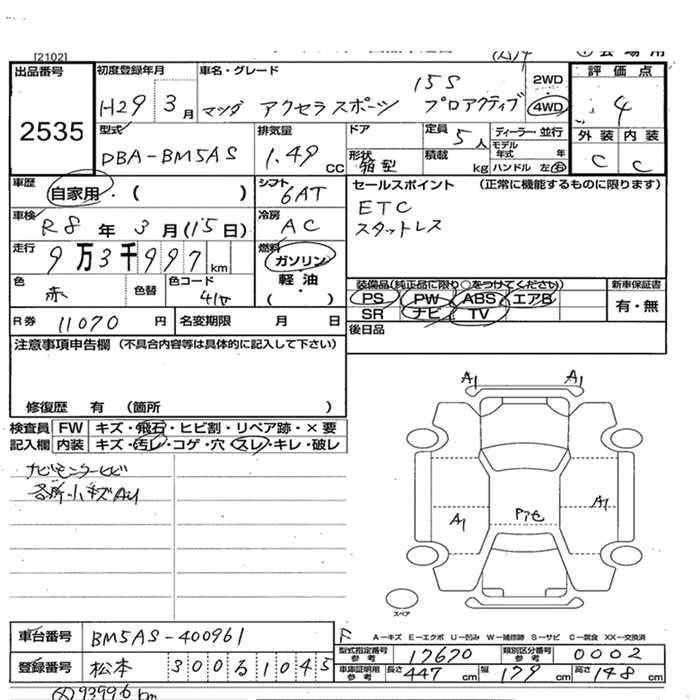 [2102]
出品番号
2535
初度登録年月
H29 3月
車名・グレード
15S
マツダ アクセラスポーツ プロアクティブ
2WD
4WD
評価点
4
外装 内装
C C
型式
DBA-BM5AS
排気量
1.49 CC
ドア
形状 箱型
定員 5人
積載 kg
ディーラー・並行
モデル年式 年
ハンドル 左・右
車歴
自家用・( )
シフト
6AT
セールスポイント (正常に機能するものに限ります)
ETC
スタットレス
車検
R8年3月(15日)
冷房
AC
走行
9万3千997km
燃料
ガソリン
軽油
( )
色
赤
色替
色コード
41V
装備品(純正品に限り○をつけてください)
PS PW ABS エアB
SR ナビ TV
新車保証書
有・無
R券 11070 円
名変期限 月 日
後日品
注意事項申告欄(不具合内容等は具体的に記入して下さい)
修復歴 有 (箇所 )
検査員
記入欄
FW キズ・飛石・ヒビ割・リペア跡・×要
内装 キズ・汚レ・コゲ・穴・スレ・キレ・破レ
ナビモニターヒビ
各所小キズAU
A1 A1
A1
A1
スペア
車台番号 BM5AS-400961
登録番号 松本 300 る 1045
F
A-キズ E-エクボ U-凹み W-補修跡 S-サビ C-腐食 XX-交換済
型式指定番号 参考 17670
類別区分番号 参考 0002
車庫証明用 参考 長さ 447 cm 幅 179 cm 高さ 148 cm
93996 km